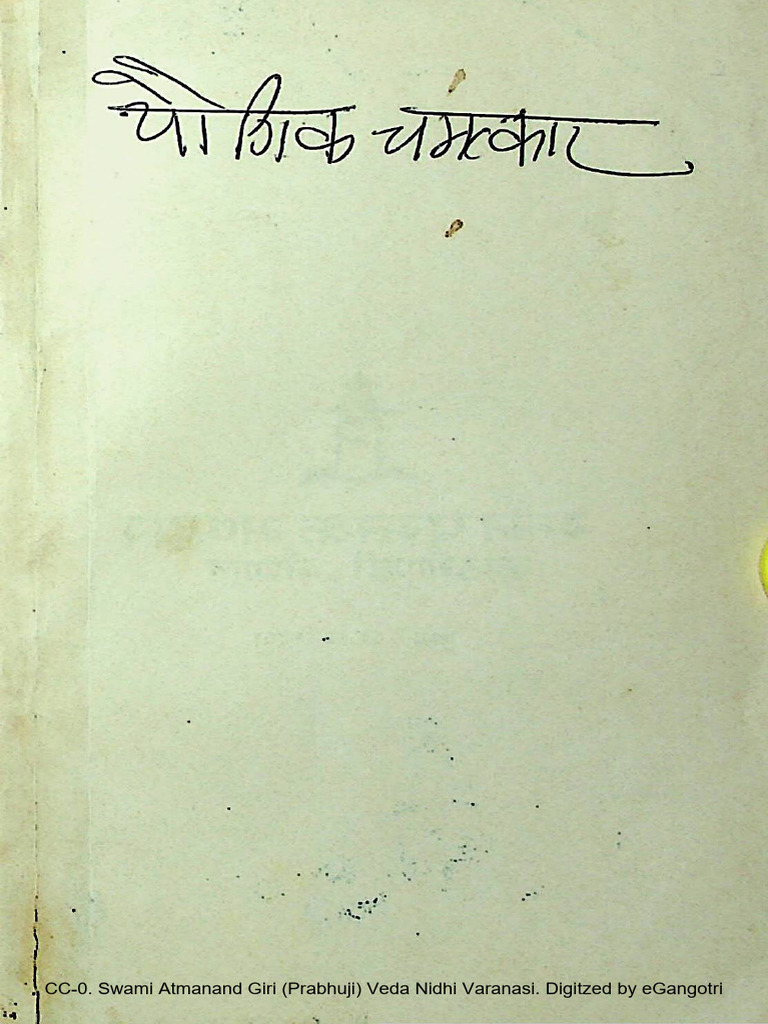 यौगिक चमत्कार
CC-0. Swami Atmanand Giri (Prabhuji) Veda Nidhi Varanasi. Digitzed by eGangotri